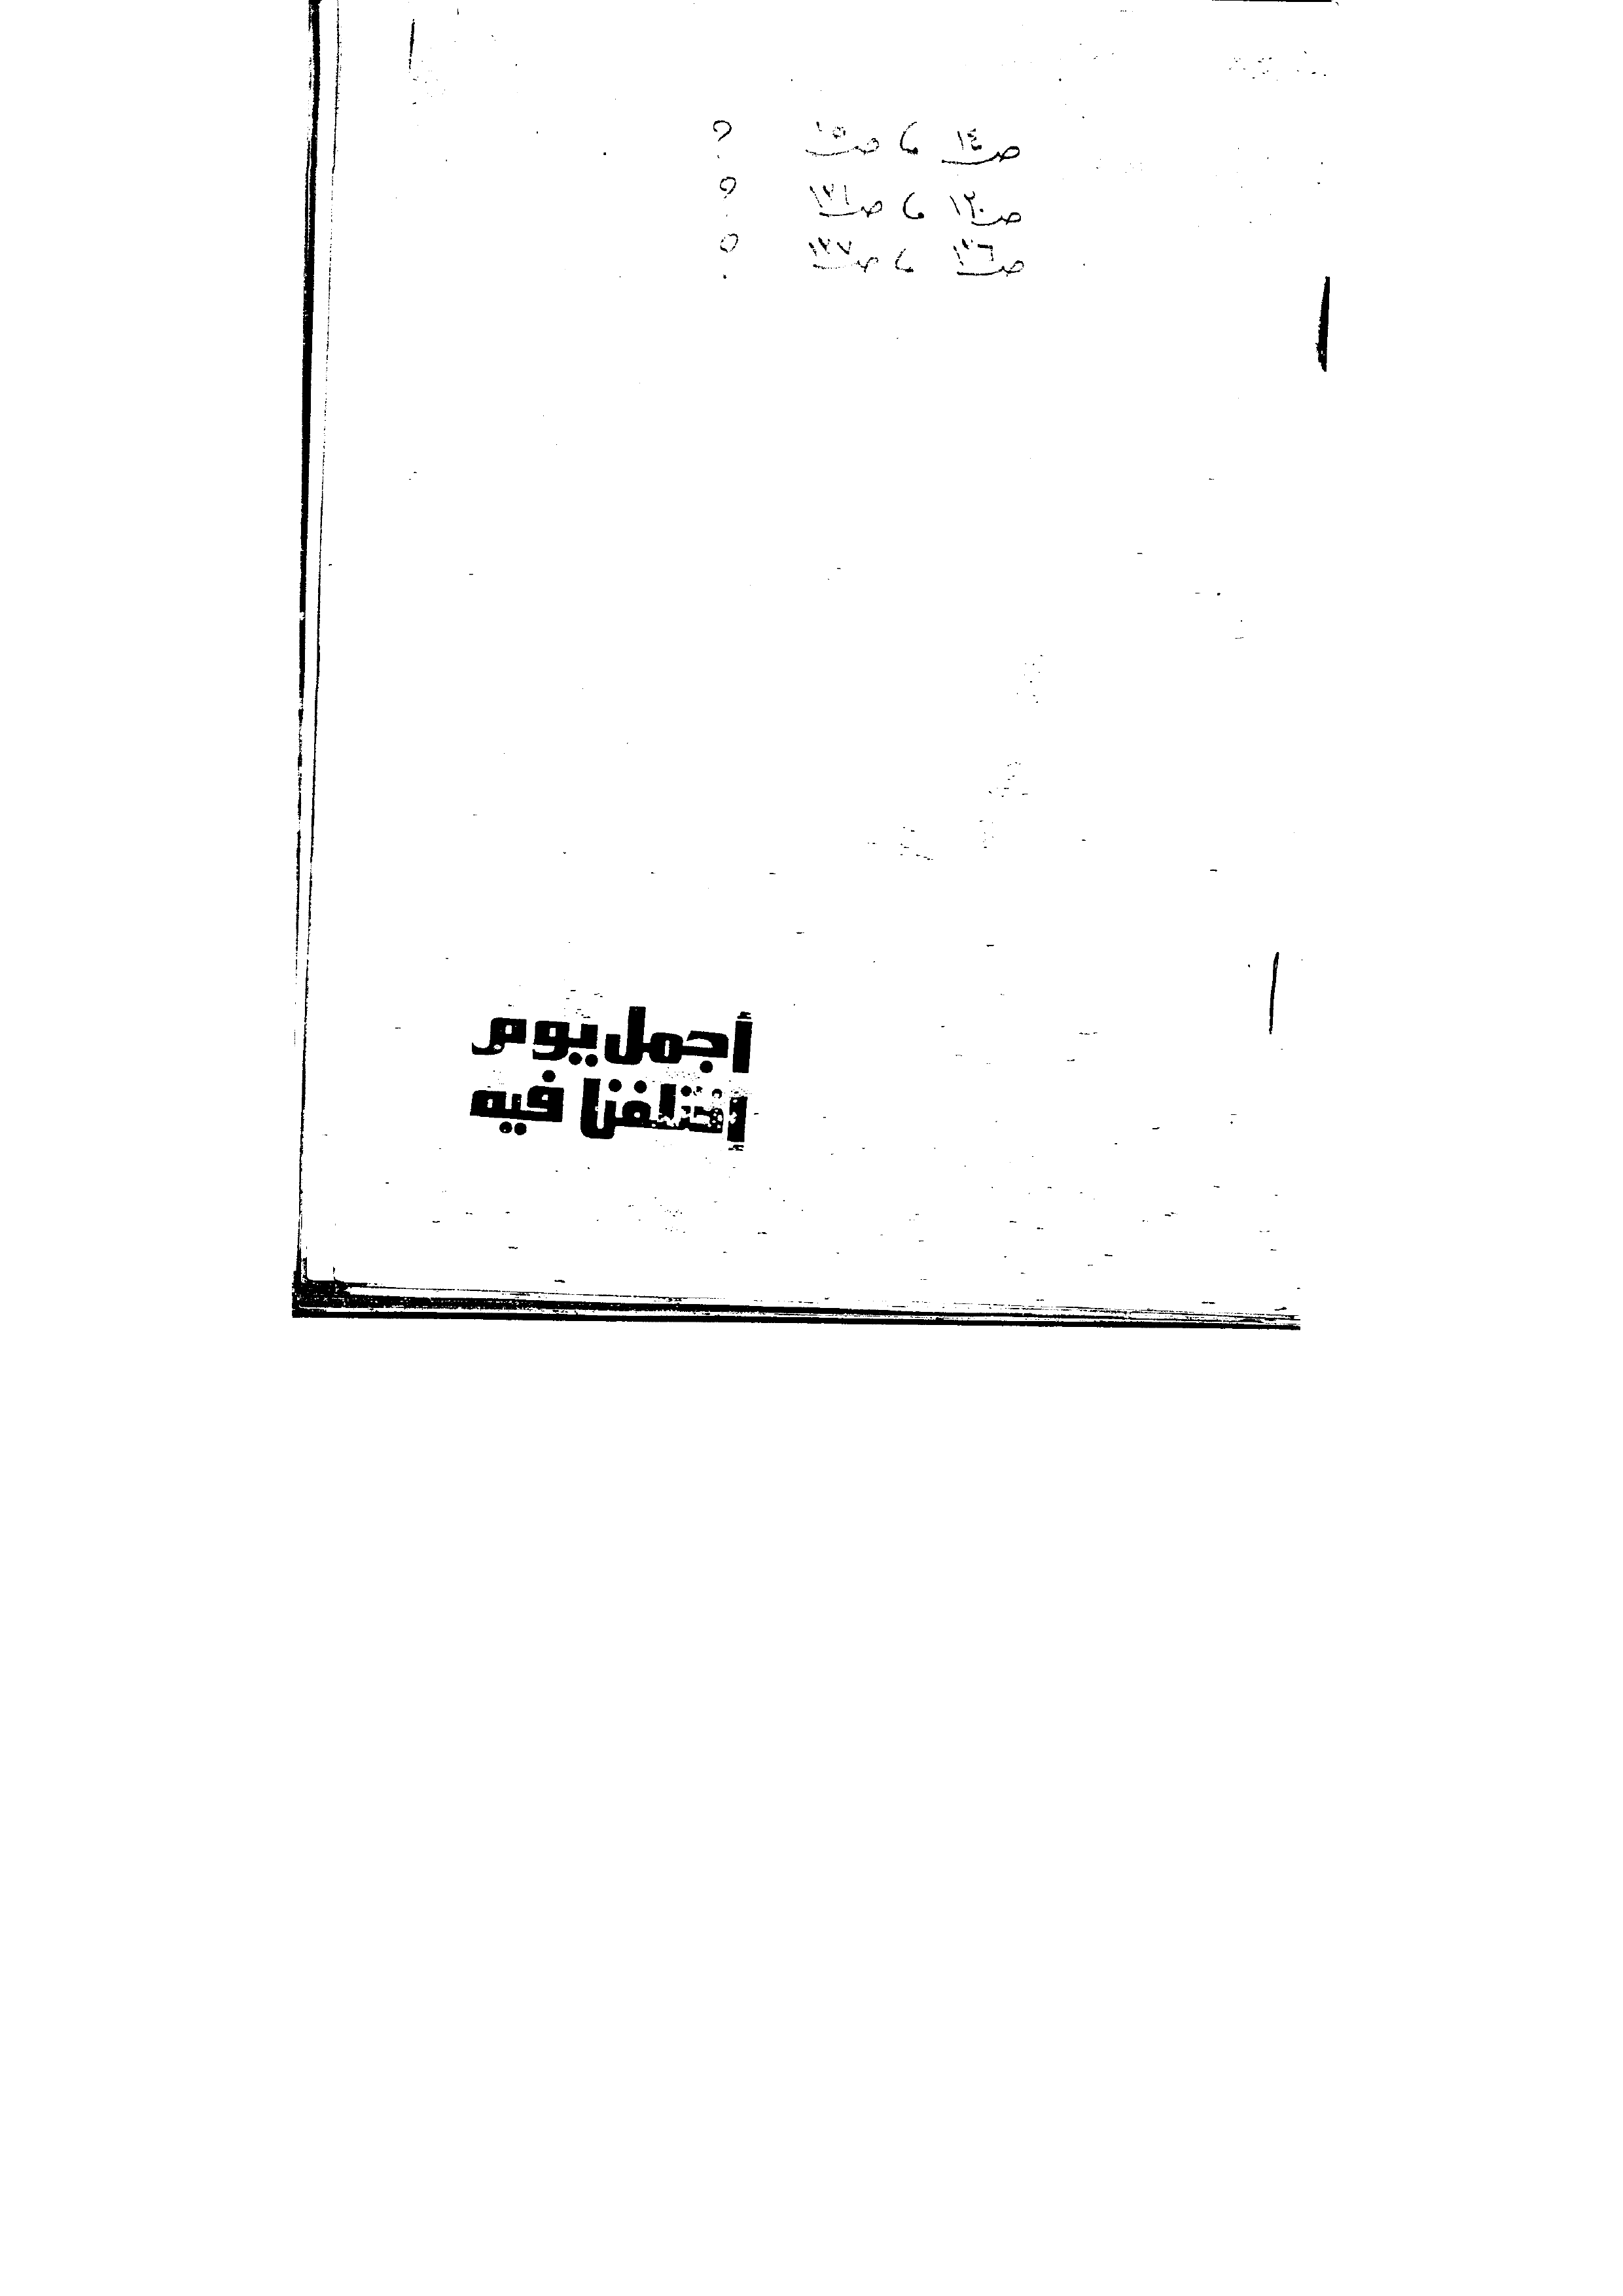 ص١٤ ، ص١٥ ؟
ص١٢٠ ، ص١٢١ ؟
ص١٢٦ ، ص١٢٧ ؟
أجمل يوم
إختلفنا فيه